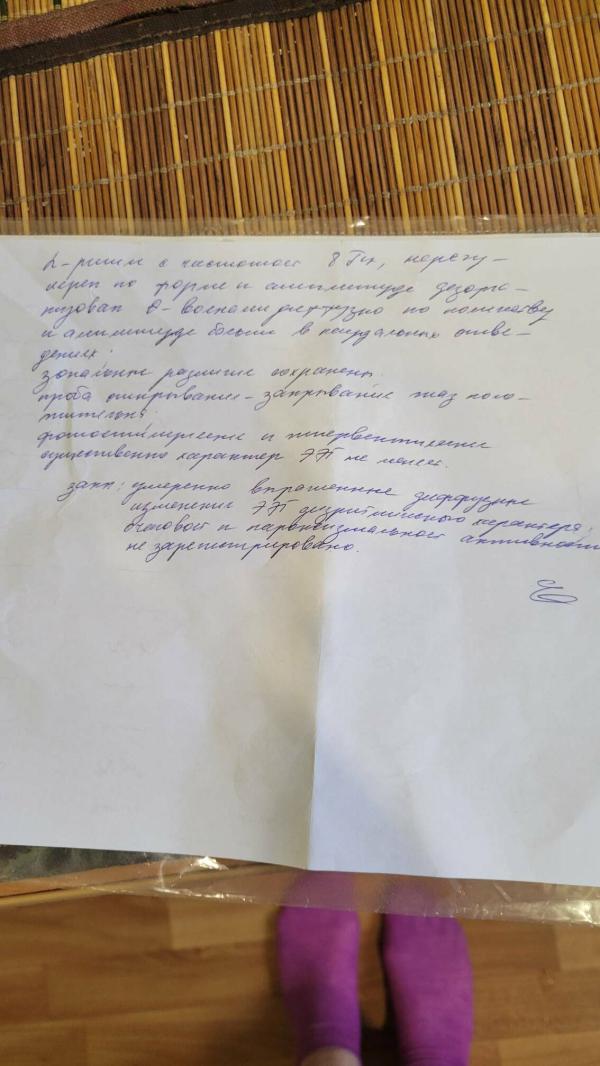 α-ритм с частотой 8 Гц, нерегу-
лерен по форме и амплитуде дезорга-
низован θ-волнами диффузно по количеству
и амплитуде больше в каудальных отве-
дениях.
зональные различия сохранены.
проба открывание-закрывание глаз поло-
жительна.
фотостимуляция и гипервентиляция
существенно характер ЭЭГ не меняет.
закл: умеренно выраженные диффузные
изменения ЭЭГ дизритмичного характера.
очаговой и пароксизмальной активности
не зарегистрировано.